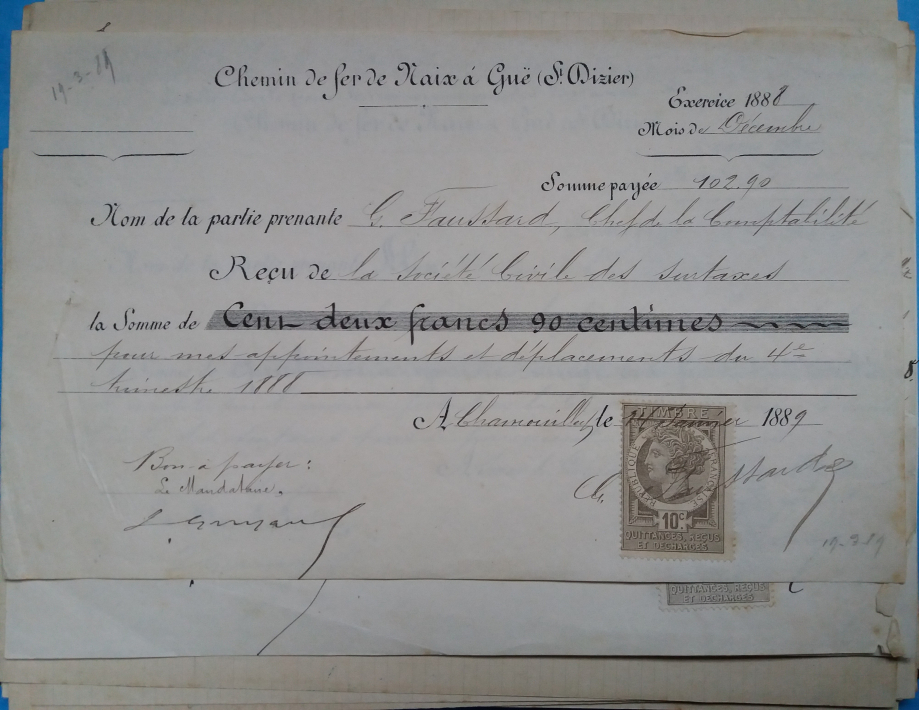 19-3-89
Chemin de fer de Naix à Guë (St. Dizier)
Exercice 1888
Mois de Décembre
Somme payée 102.90
Nom de la partie prenante G. Faussard, Chef de la Comptabilité
Reçu de la société Civile des surtaxes
la Somme de Cent deux francs 90 centimes
pour mes appointements et déplacements du 4e
trimestre 1888
A Chamouilley le Janvier 1889
Bon à payer :
Le Mandataire.
TIMBRE
RÉPUBLIQUE FRANÇAISE
10c
QUITTANCES, REÇUS
ET DÉCHARGES
19-3-89
QUITTANCES, REÇUS
ET DÉCHARGES
8.